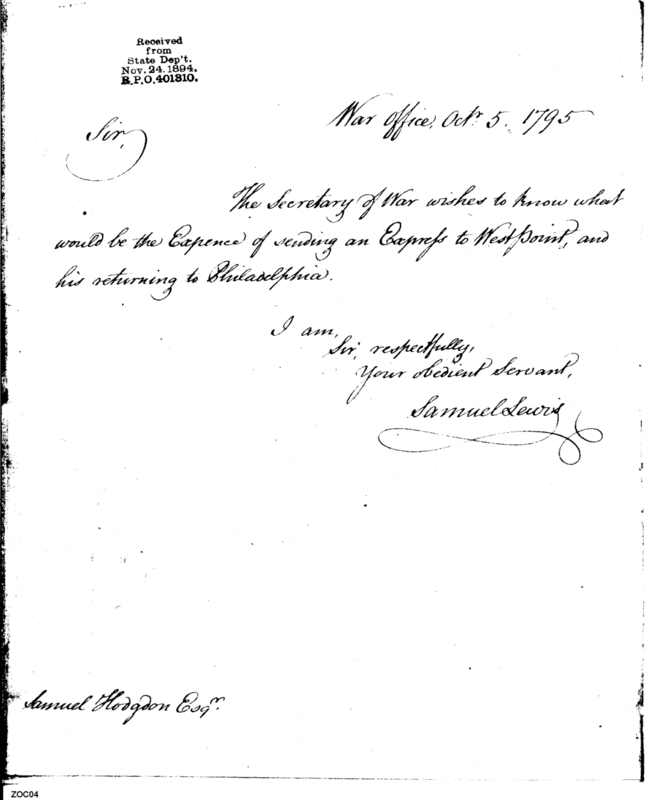 Received
from
State Dep't.
Nov. 24. 1894.
R.P.O. 401310.
War Office, Octr. 5. 1795
Sir,
The Secretary of War wishes to know what
would be the Expence of sending an Express to West Point, and
his returning to Philadelphia.
I am,
Sir, respectfully,
Your obedient Servant,
Samuel Lewis
Samuel Hodgdon Esqr.
ZOC04